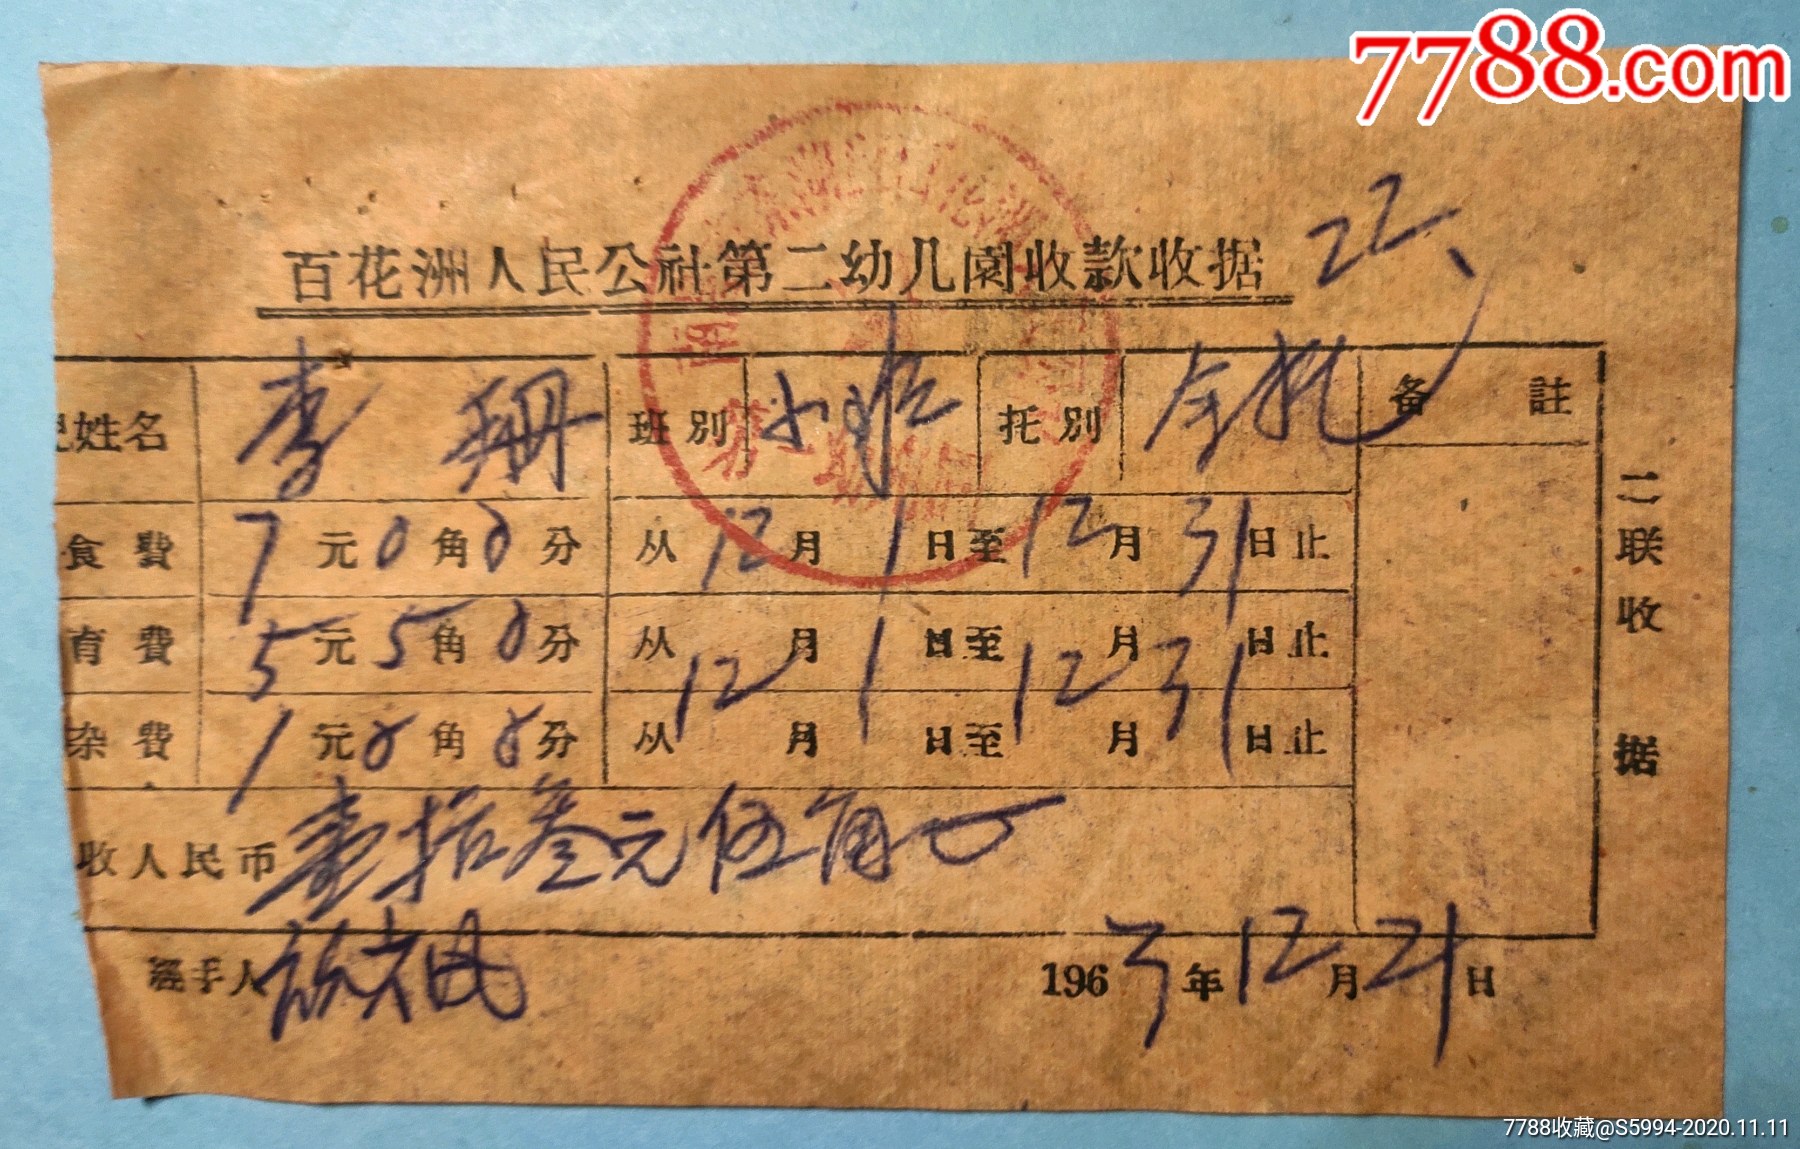 7788.com
百花洲人民公社第二幼儿園收款收据
22
姓名 李珊 班別 小班 托別 全托 备註
食費 7元0角0分 从12月1日至12月31日止
育費 5元5角0分 从12月1日至12月31日止
杂費 1元0角0分 从12月1日至12月31日止
收人民币 壹拾叁元伍角
二联收据
經手人
1963年12月21日
7788收藏@S5994-2020.11.11